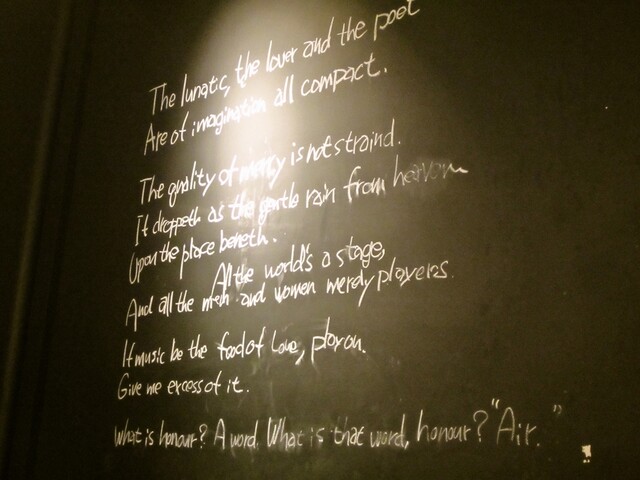 The lunatic, the lover and the poet
Are of imagination all compact.
The quality of mercy is not straind.
It droppeth as the gentle rain from heaven
Upon the place beneth.
All the world's a stage,
And all the men and women merely players.
If music be the food of love, play on.
Give me excess of it.
What is honour? A word. What is that word, honour? "Air."